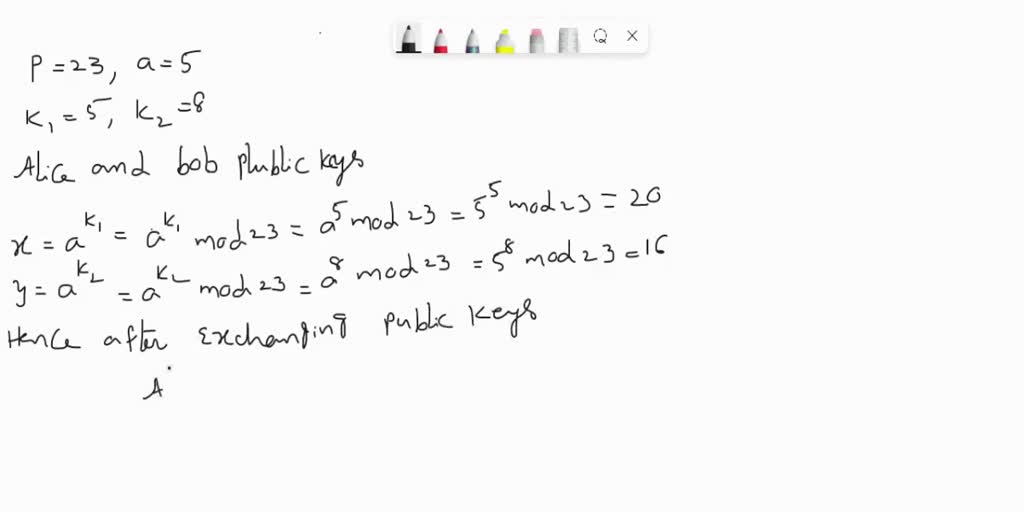 P = 23, a = 5
K₁ = 5, K₂ = 8
Alice and bob Plublic keys
x = a^K₁ = a^K₁ mod 23 = a^5 mod 23 = 5^5 mod 23 = 20
y = a^K₂ = a^K₂ mod 23 = a^8 mod 23 = 5^8 mod 23 = 16
Hence after Exchanging public keys
A